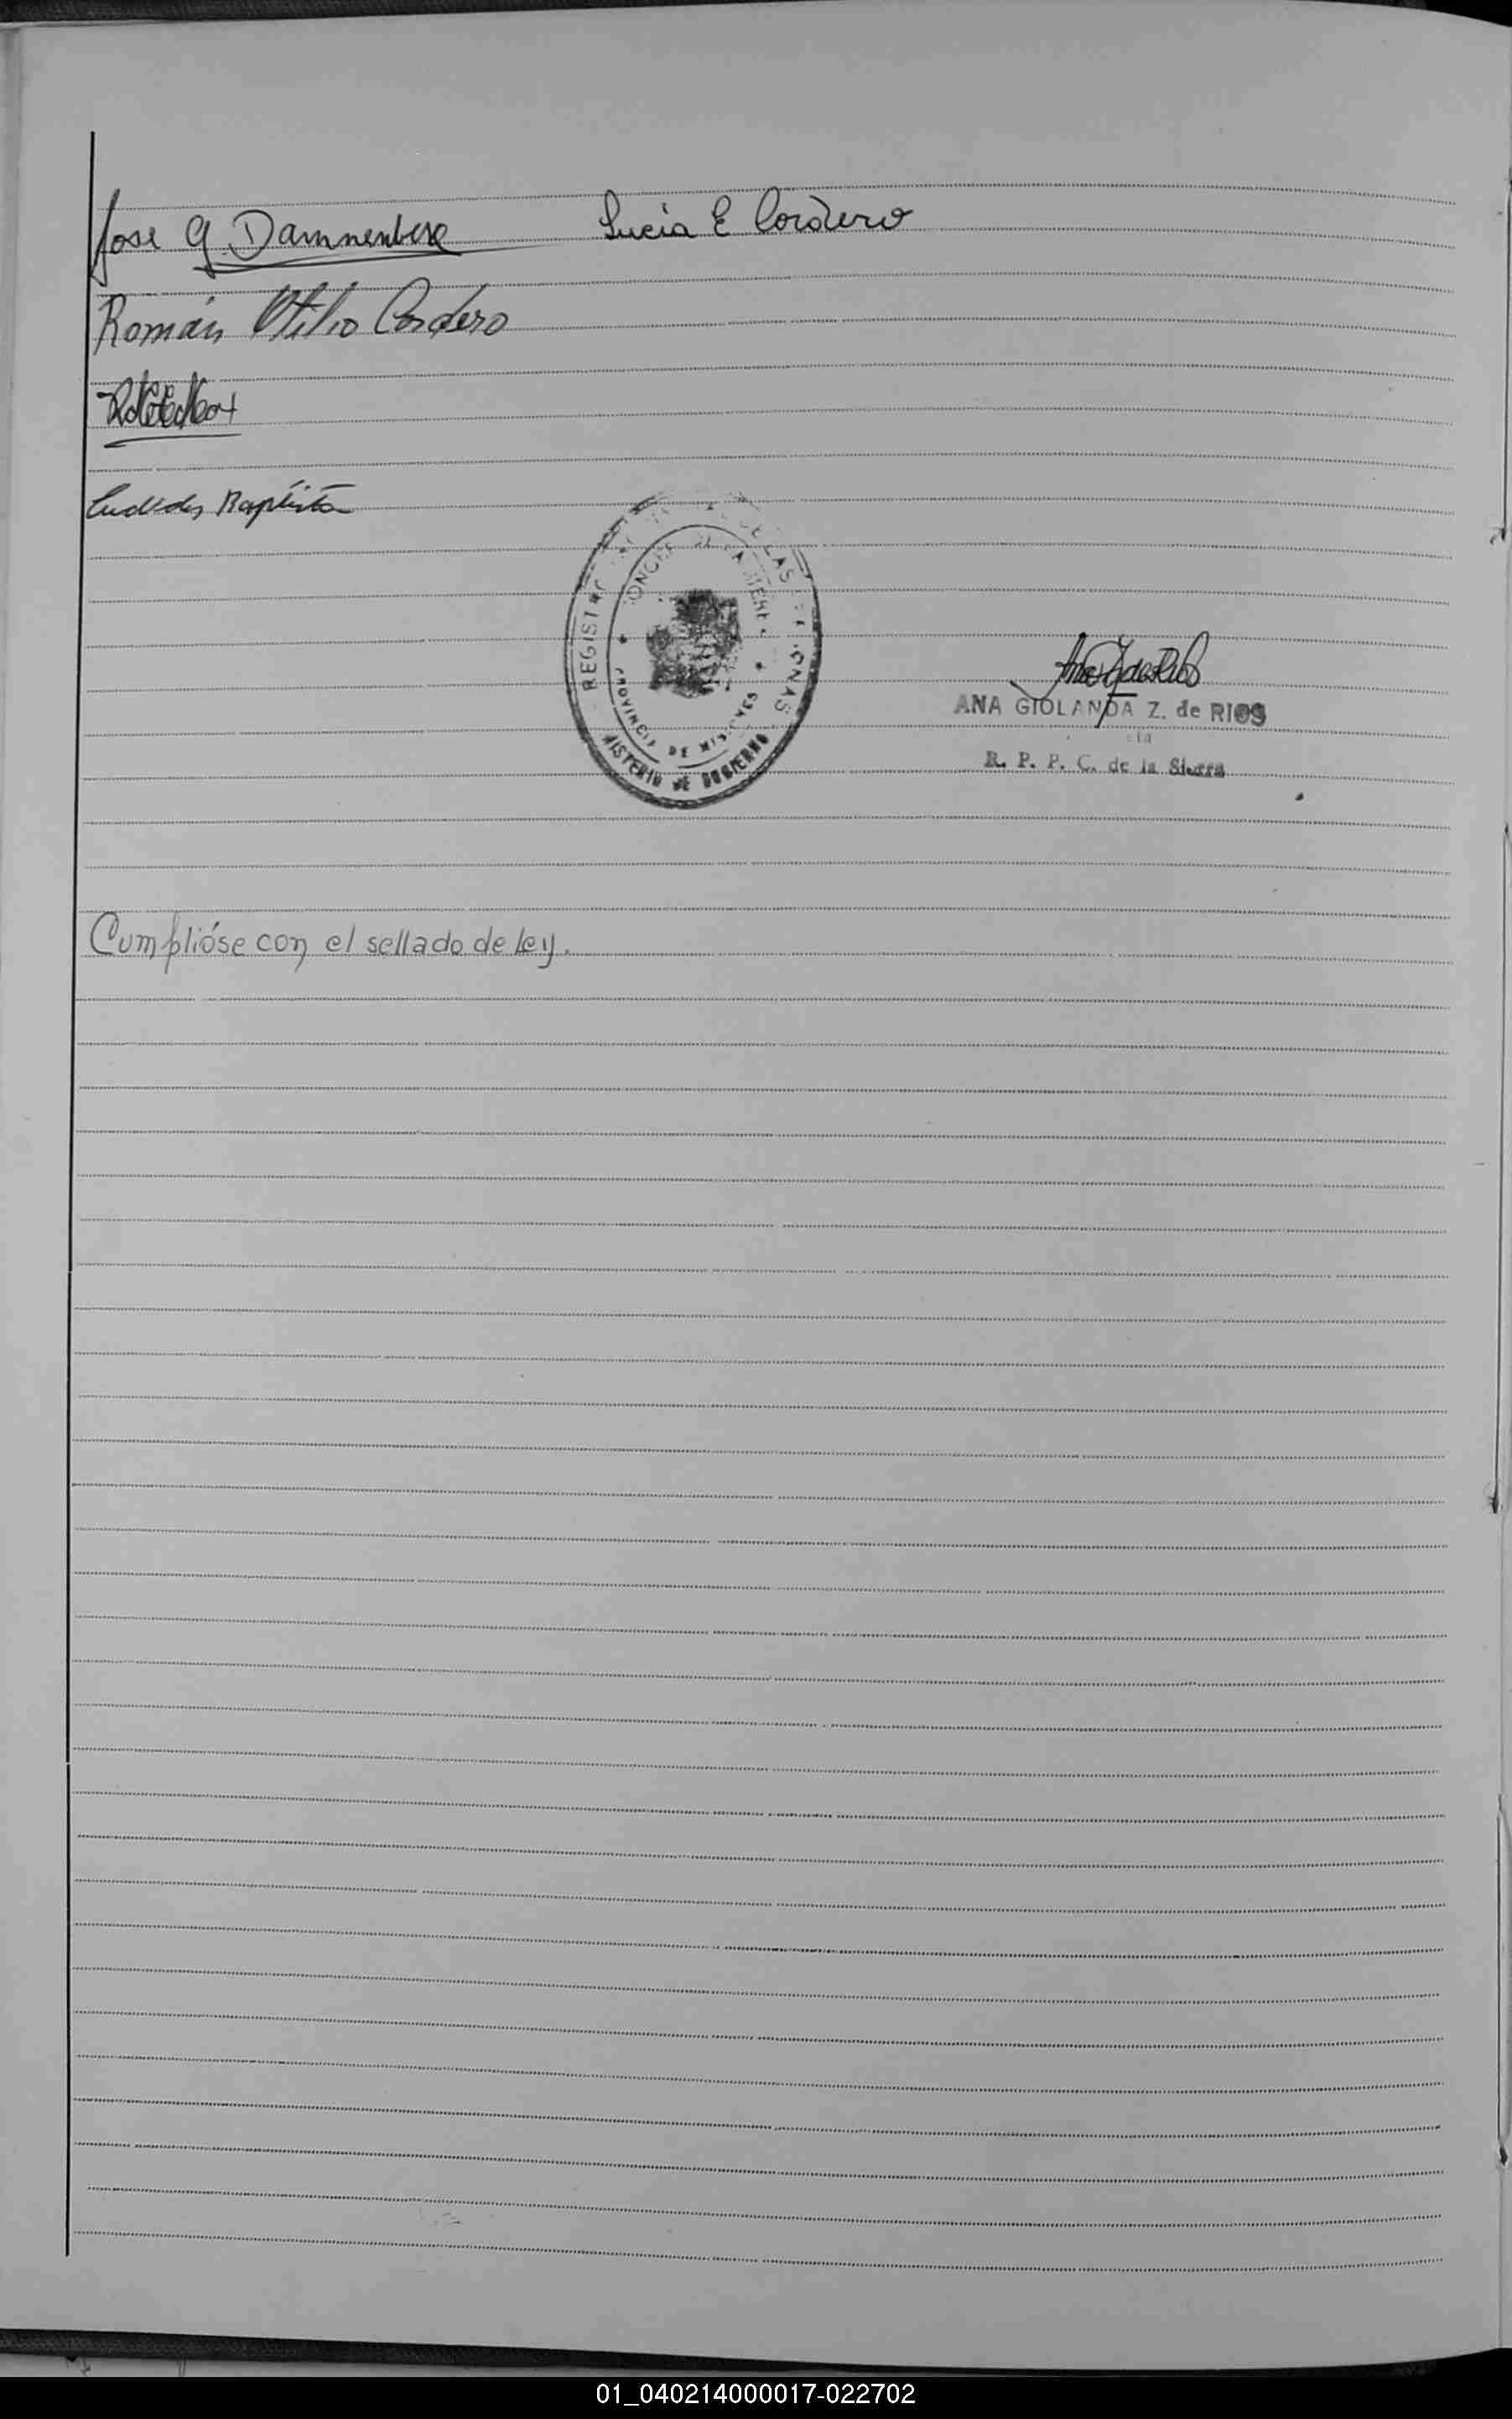 Jose G. Dannenberg Lucia E Cordero
Román Otilio Cordero
Baptista
REGISTRO DE LAS PERSONAS
CONCEP DE LA SIERRA
PROVINCIA DE MISIONES
MINISTERIO DE GOBIERNO
ANA GIOLANDA Z. de RIOS
R. P. P. C. de la Sierra
Cumplióse con el sellado de Ley.
01_040214000017-022702